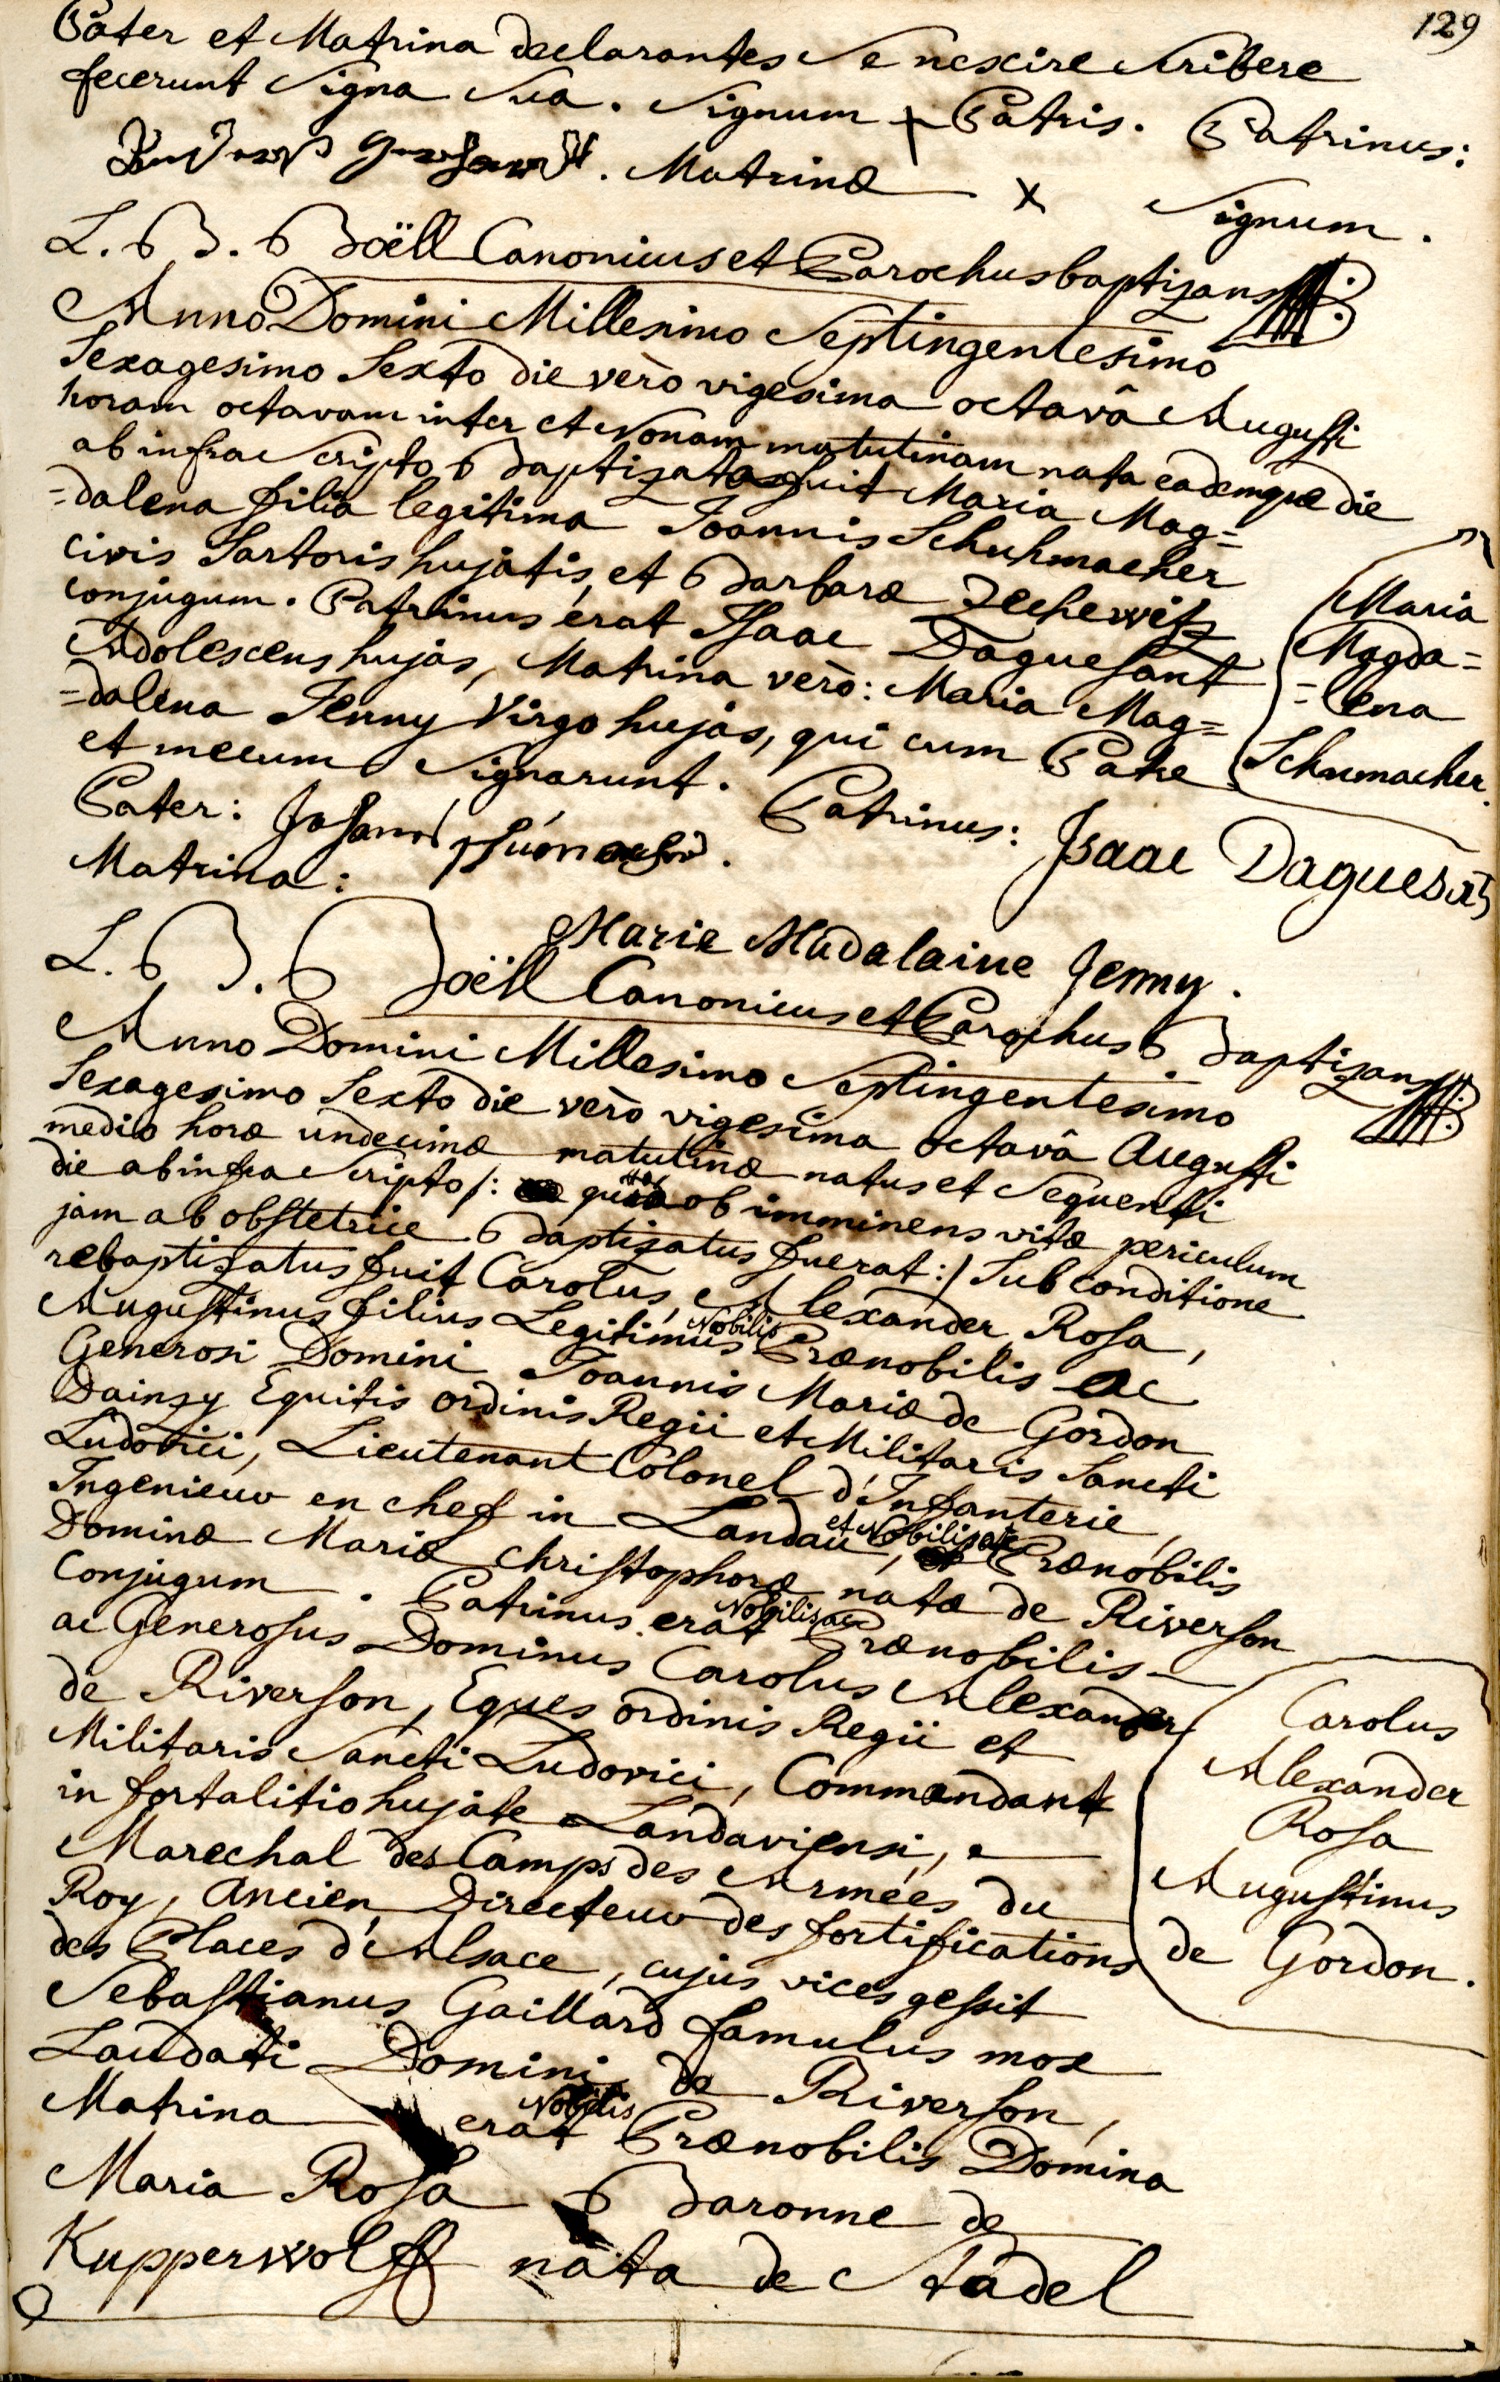 129
Pater et Matrina declarantes se nescire scribere
fecerunt signa sua. signum + Patris. Patrinus:
. Matrinæ x signum.
L. B. Boëll Canonicus et Parochus baptizans
Anno Domini Millesimo Septingentesimo
Sexagesimo Sexto die verò vigesima octavâ Augusti
horam octavam inter et nonam matutinam nata eademque die
ab infra scripto baptizata fuit Maria Mag=
=dalena filia legitima Joannis Schuhmacher
civis Sartoris hujatis, et Barbaræ Zechewitz
conjugum. Patrinus erat Isaac Daguesant
Adolescens hujas, Matrina verò: Maria Mag=
=dalena Jenny Virgo hujas, qui cum Patre
et mecum signarunt.
Maria
Magda=
=lena
Schumacher.
Pater: Johannes Schumacher. Patrinus: Isaac Daguesat
Matrina:
Marie Madalaine Jenny.
L. B. Boëll Canonicus et Parochus Baptizans
Anno Domini Millesimo Septingentesimo
Sexagesimo Sexto die verò vigesima octavâ Augusti
medio horæ undecimæ matutinæ natus et sequenti
die ab infra scripto /: quia ob imminens vitæ periculum
jam ab obstetrice baptizatus fuerat :/ sub conditione
rebaptizatus fuit Carolus, Alexander, Rosa,
Augustinus filius Legitimus Nobilis Prænobilis ac
Generosi Domini Joannis Mariæ de Gordon
Dainzy Equitis ordinis Regii et Militaris Sancti
Ludovici, Lieutenant Colonel d'Infanterie,
Ingenieur en chef in Landau, et Nobilis ac Prænobilis
Dominæ Mariæ Christophoræ natæ de Riverson
Conjugum. Patrinus erat Nobilis ac Prænobilis
ac Generosus Dominus Carolus Alexander
de Riverson, Eques ordinis Regii et
Militaris Sancti Ludovici, Commandant
in fortalitio hujate Landaviensi,
Marechal des Camps des Armées du
Roy, Ancien Directeur des fortifications
des Places d'Alsace, cujus vices gessit
Sebastianus Gaillard famulus mox
Laudati Domini de Riverson,
Matrina erat Nobilis Prænobilis Domina
Maria Rosa Baronne de
Kupperwolff nata de Stadel
Carolus
Alexander
Rosa
Augustinus
de Gordon.